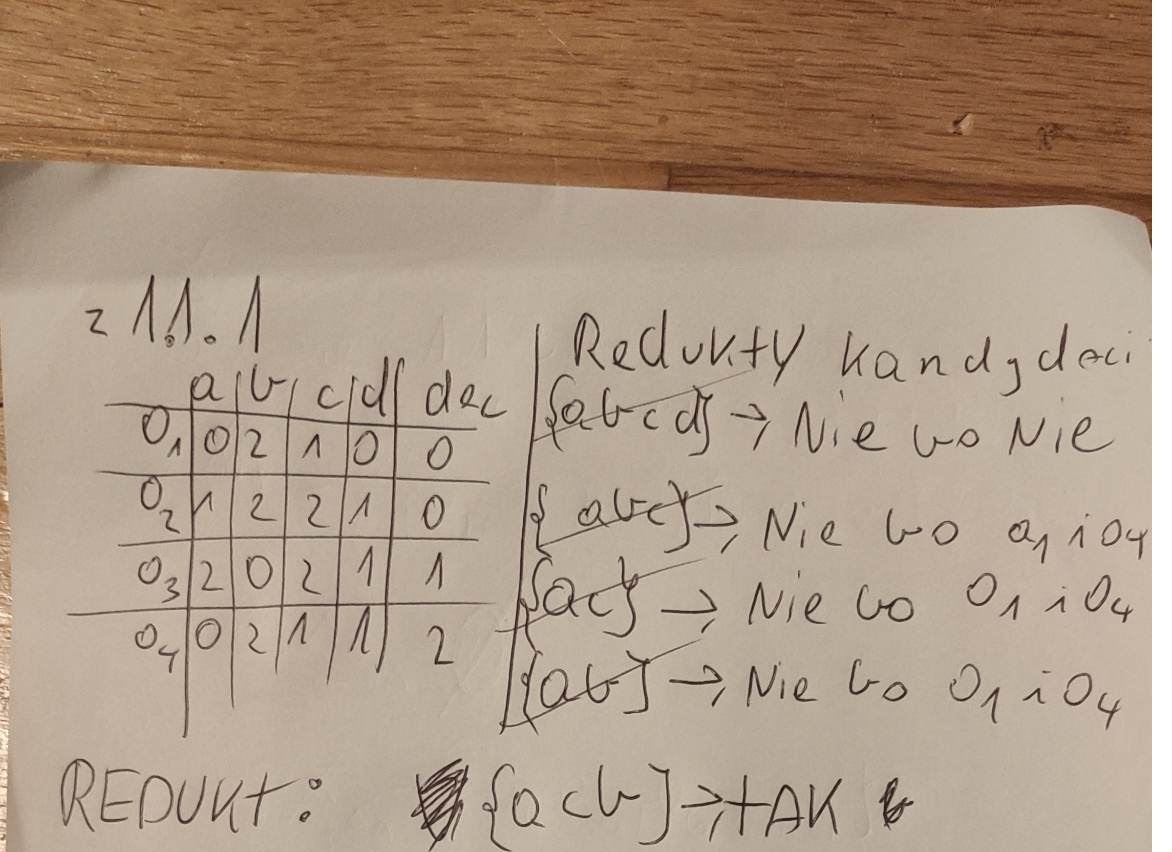 z 11.1
a b c d dec
O1 0 2 1 0 0
O2 1 2 2 1 0
O3 2 0 2 1 1
O4 0 2 1 1 2
Redukty kandydaci
{abcd} → Nie bo Nie
{abc} → Nie bo O1 i O4
{ac} → Nie bo O1 i O4
{ab} → Nie bo O1 i O4
REDUKt: {acb} → tAK